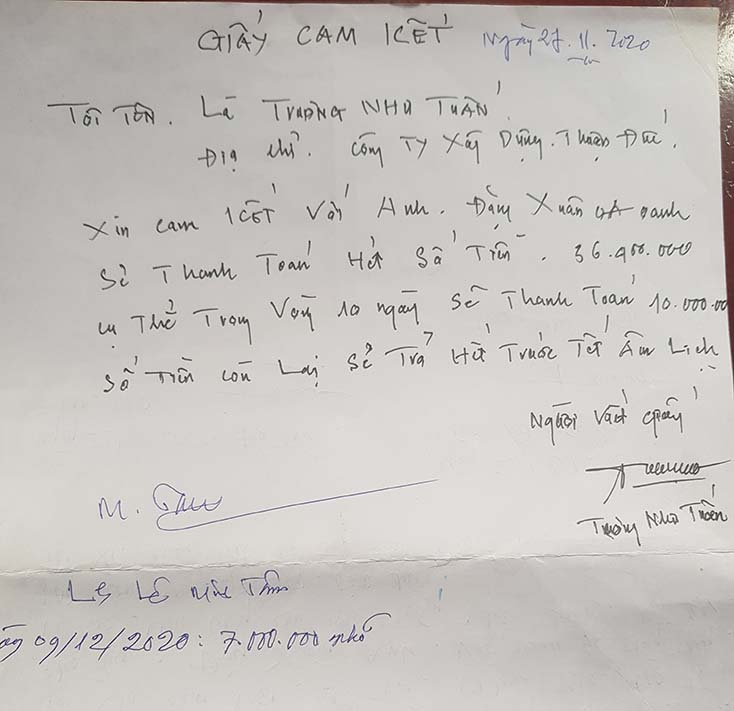 GIẤY CAM KẾT Ngày 27.11.2020
Tôi Tên. Là TRƯƠNG NHƯ TUẤN
Địa chỉ. Công TY Xây Dựng. Thuận Đức.
Xin cam KẾT Với Anh. Đặng Xuân Oanh
Sẽ Thanh Toán Hết Số Tiền. 36.400.000
cụ Thể Trong Vòng 10 ngày Sẽ Thanh Toán 10.000.00
Số Tiền còn Lại Sẽ Trả Hết Trước Tết Âm Lịch
Người Viết Giấy
M.
Trương Như Tuấn
Lê
09/12/2020: 7.000.000